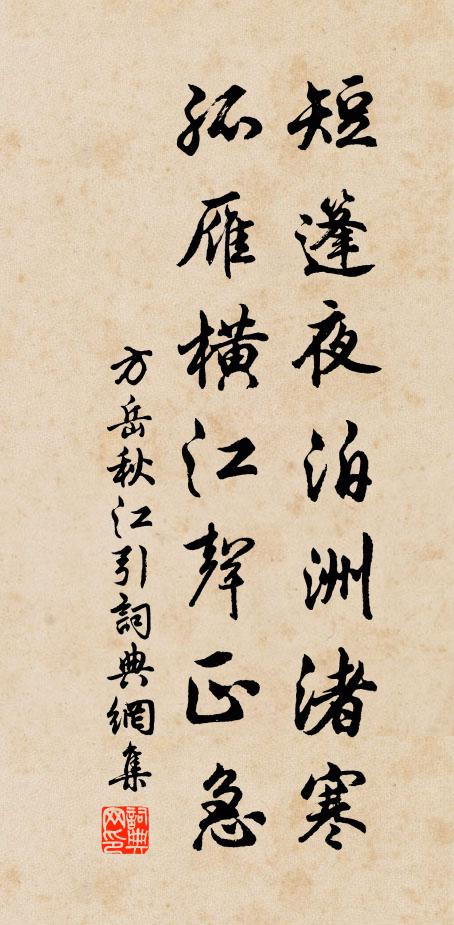 短蓬夜泊洲渚寒
孤雁橫江聲正急
方岳秋江引詞典網集
詞典网印